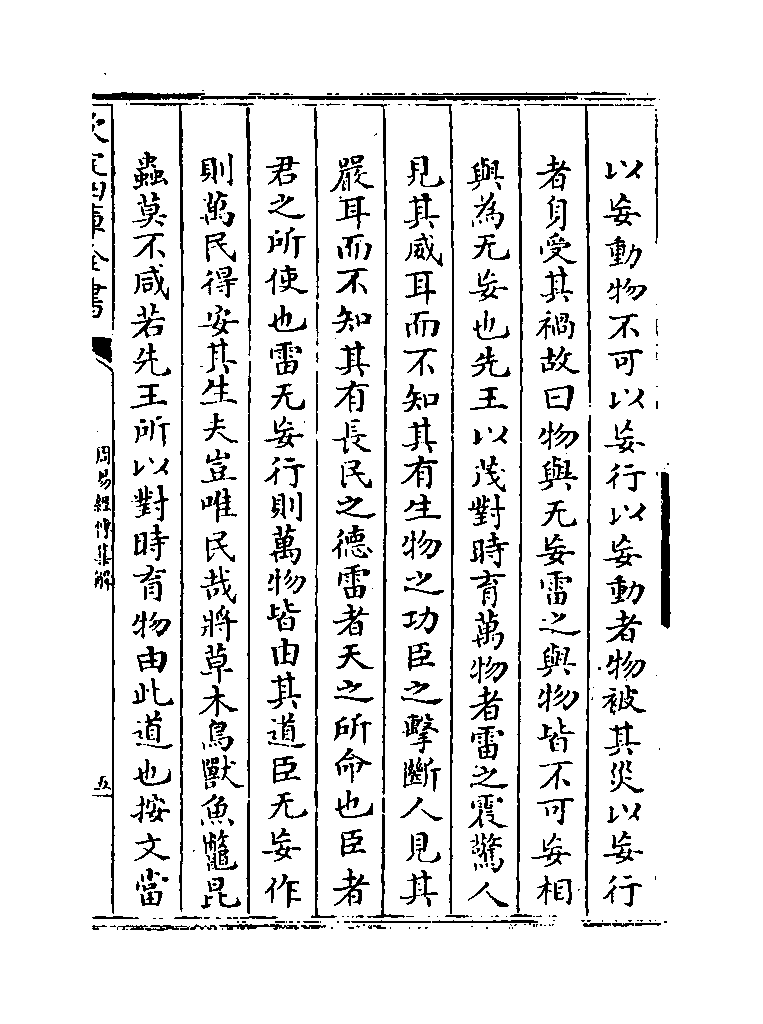 以妄動物不可以妄行以妄動者物被其災以妄行
者身受其禍故曰物與无妄雷之與物皆不可妄相
與為无妄也先王以茂對時育萬物者雷之震驚人
見其威耳而不知其有生物之功臣之擊斷人見其
嚴耳而不知其有長民之德雷者天之所命也臣者
君之所使也雷无妄行則萬物皆由其道臣无妄作
則萬民得安其生夫豈唯民哉將草木鳥獸魚鼈昆
蟲莫不咸若先王所以對時育物由此道也按文當
欽定四庫全書
周易經傳集解
五